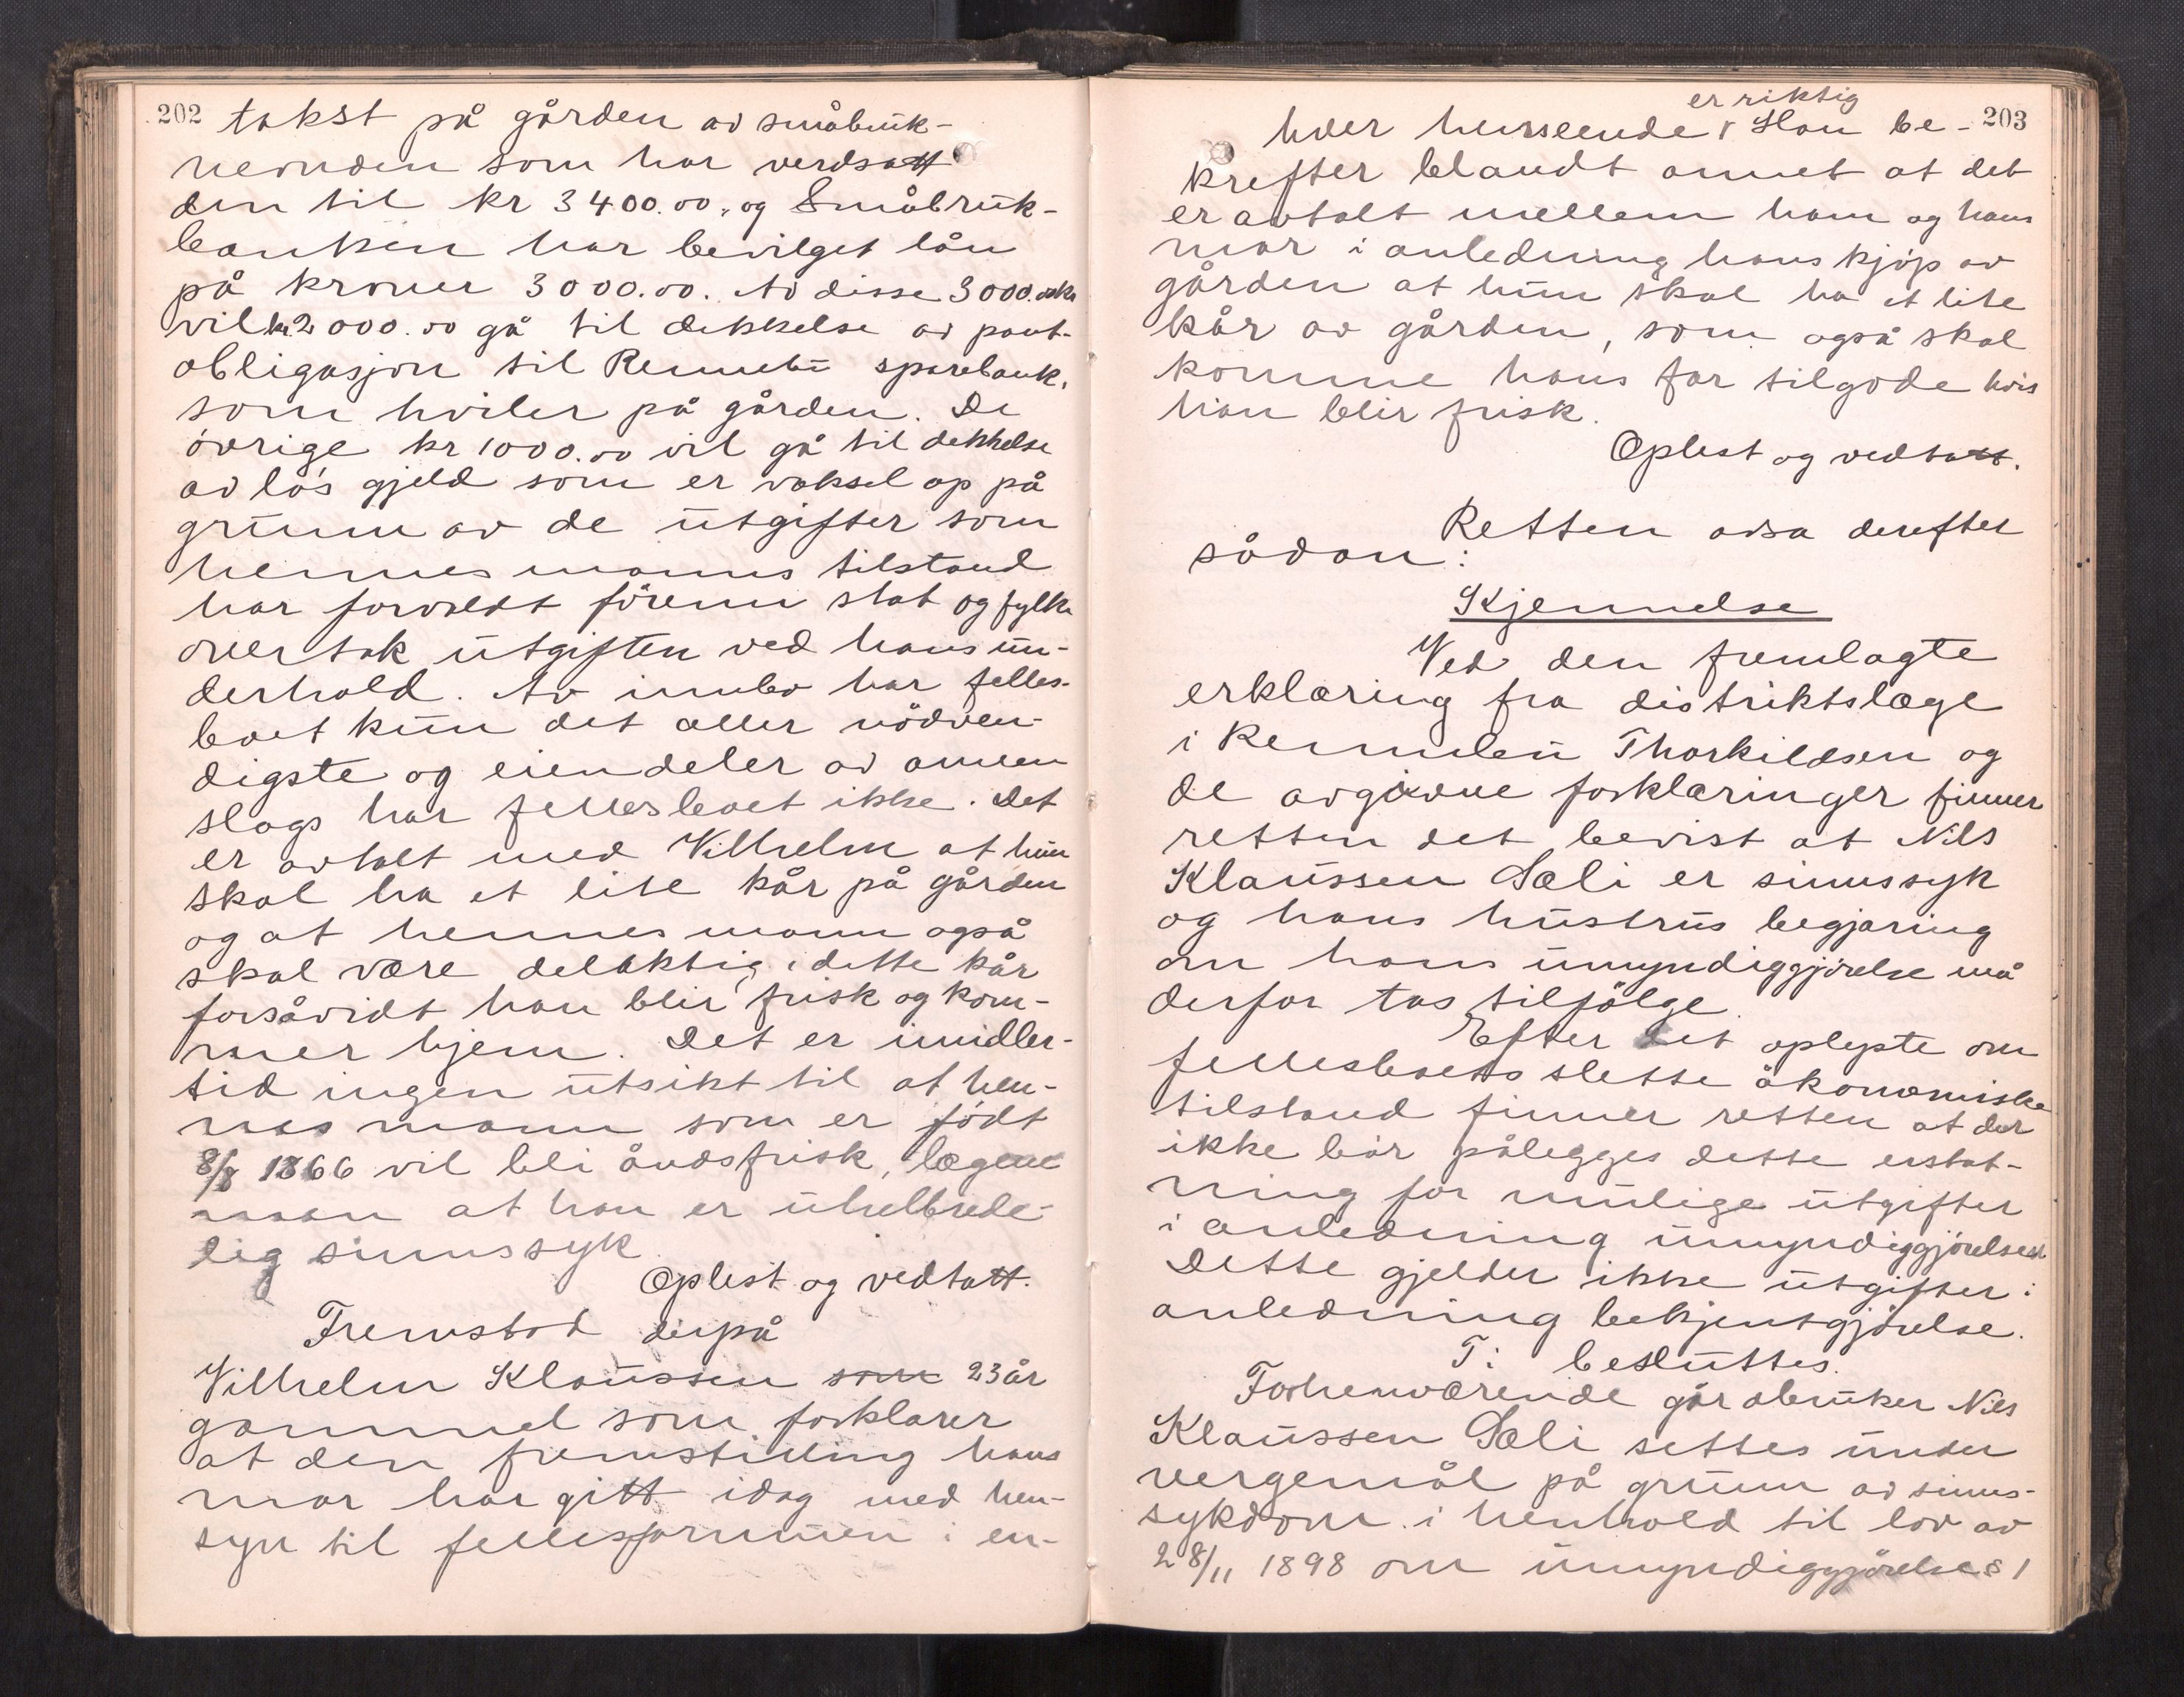 202
takst på gården av småbruk-
nevnden som har verdsatt
den til kr 3400.00, og Småbruk-
banken har bevilget lån
på kroner 3000.00. Av disse 3000.00 kr
vil kr 2000.00 gå til dekkelse av pant-
obligasjon til Rennebu sparebank,
som hviler på gården. De
övrige kr 1000.00 vil gå til dekkelse
av lös gjeld som er vokset op på
grunn av de utgifter som
hennes manns tilstand
har forvoldt förenn stat og fylke
overtok utgiften ved hans un-
derhold. Av innbo har felles-
boet kun det aller nödven-
digste og eiendeler av annen
slags har fellesboet ikke. Det
er avtalt med Vilhelm at hun
skal ha et lite kår på gården
og at hennes mann også
skal være delaktig i dette kår
forsåvidt han blir frisk og kom-
mer hjem. Det er imidler-
tid ingen utsikt til at hen-
nes mann som er födt
8/8 1866 vil bli åndsfrisk, lægene
mener at han er uhelbrede-
lig sinnssyk
Oplest og vedtatt.
Fremstod derpå
Vilhelm Klaussen som 23 år
gammel som forklarer
at den fremstilling hans
mor har gitt idag med hen-
syn til fellesformuen i en-
203
er riktig
hver henseende v Han be-
krefter blandt annet at det
er avtalt mellem ham og hans
mor i anledning hans kjöp av
gården at hun skal ha et lite
kår av gården, som også skal
komme hans far tilgode hvis
han blir frisk.
Oplest og vedtatt.
Retten avsa derefter
sådan:
Kjennelse
Ved den fremlagte
erklæring fra distriktslæge
i Rennebu Thorkildsen og
de avgivne forklaringer finner
retten det bevist at Nils
Klaussen Sæli er sinnssyk
og hans hustrus begjæring
om hans umyndiggjörelse må
derfor tas tilfölge.
Efter det oplyste om
fellesboets slette ökonomiske
tilstand finner retten at der
ikke bör pålegges dette erstat-
ning for mulige utgifter
i anledning umyndiggjörelsen.
Dette gjelder ikke utgifter i
anledning bekjentgjörelse.
T: besluttes.
Forhenværende gårdbruker Nils
Klaussen Sæli settes under
vergemål på grunn av sinns-
sykdom i henhold til lov av
28/11 1898 om umyndiggjörelse § 1